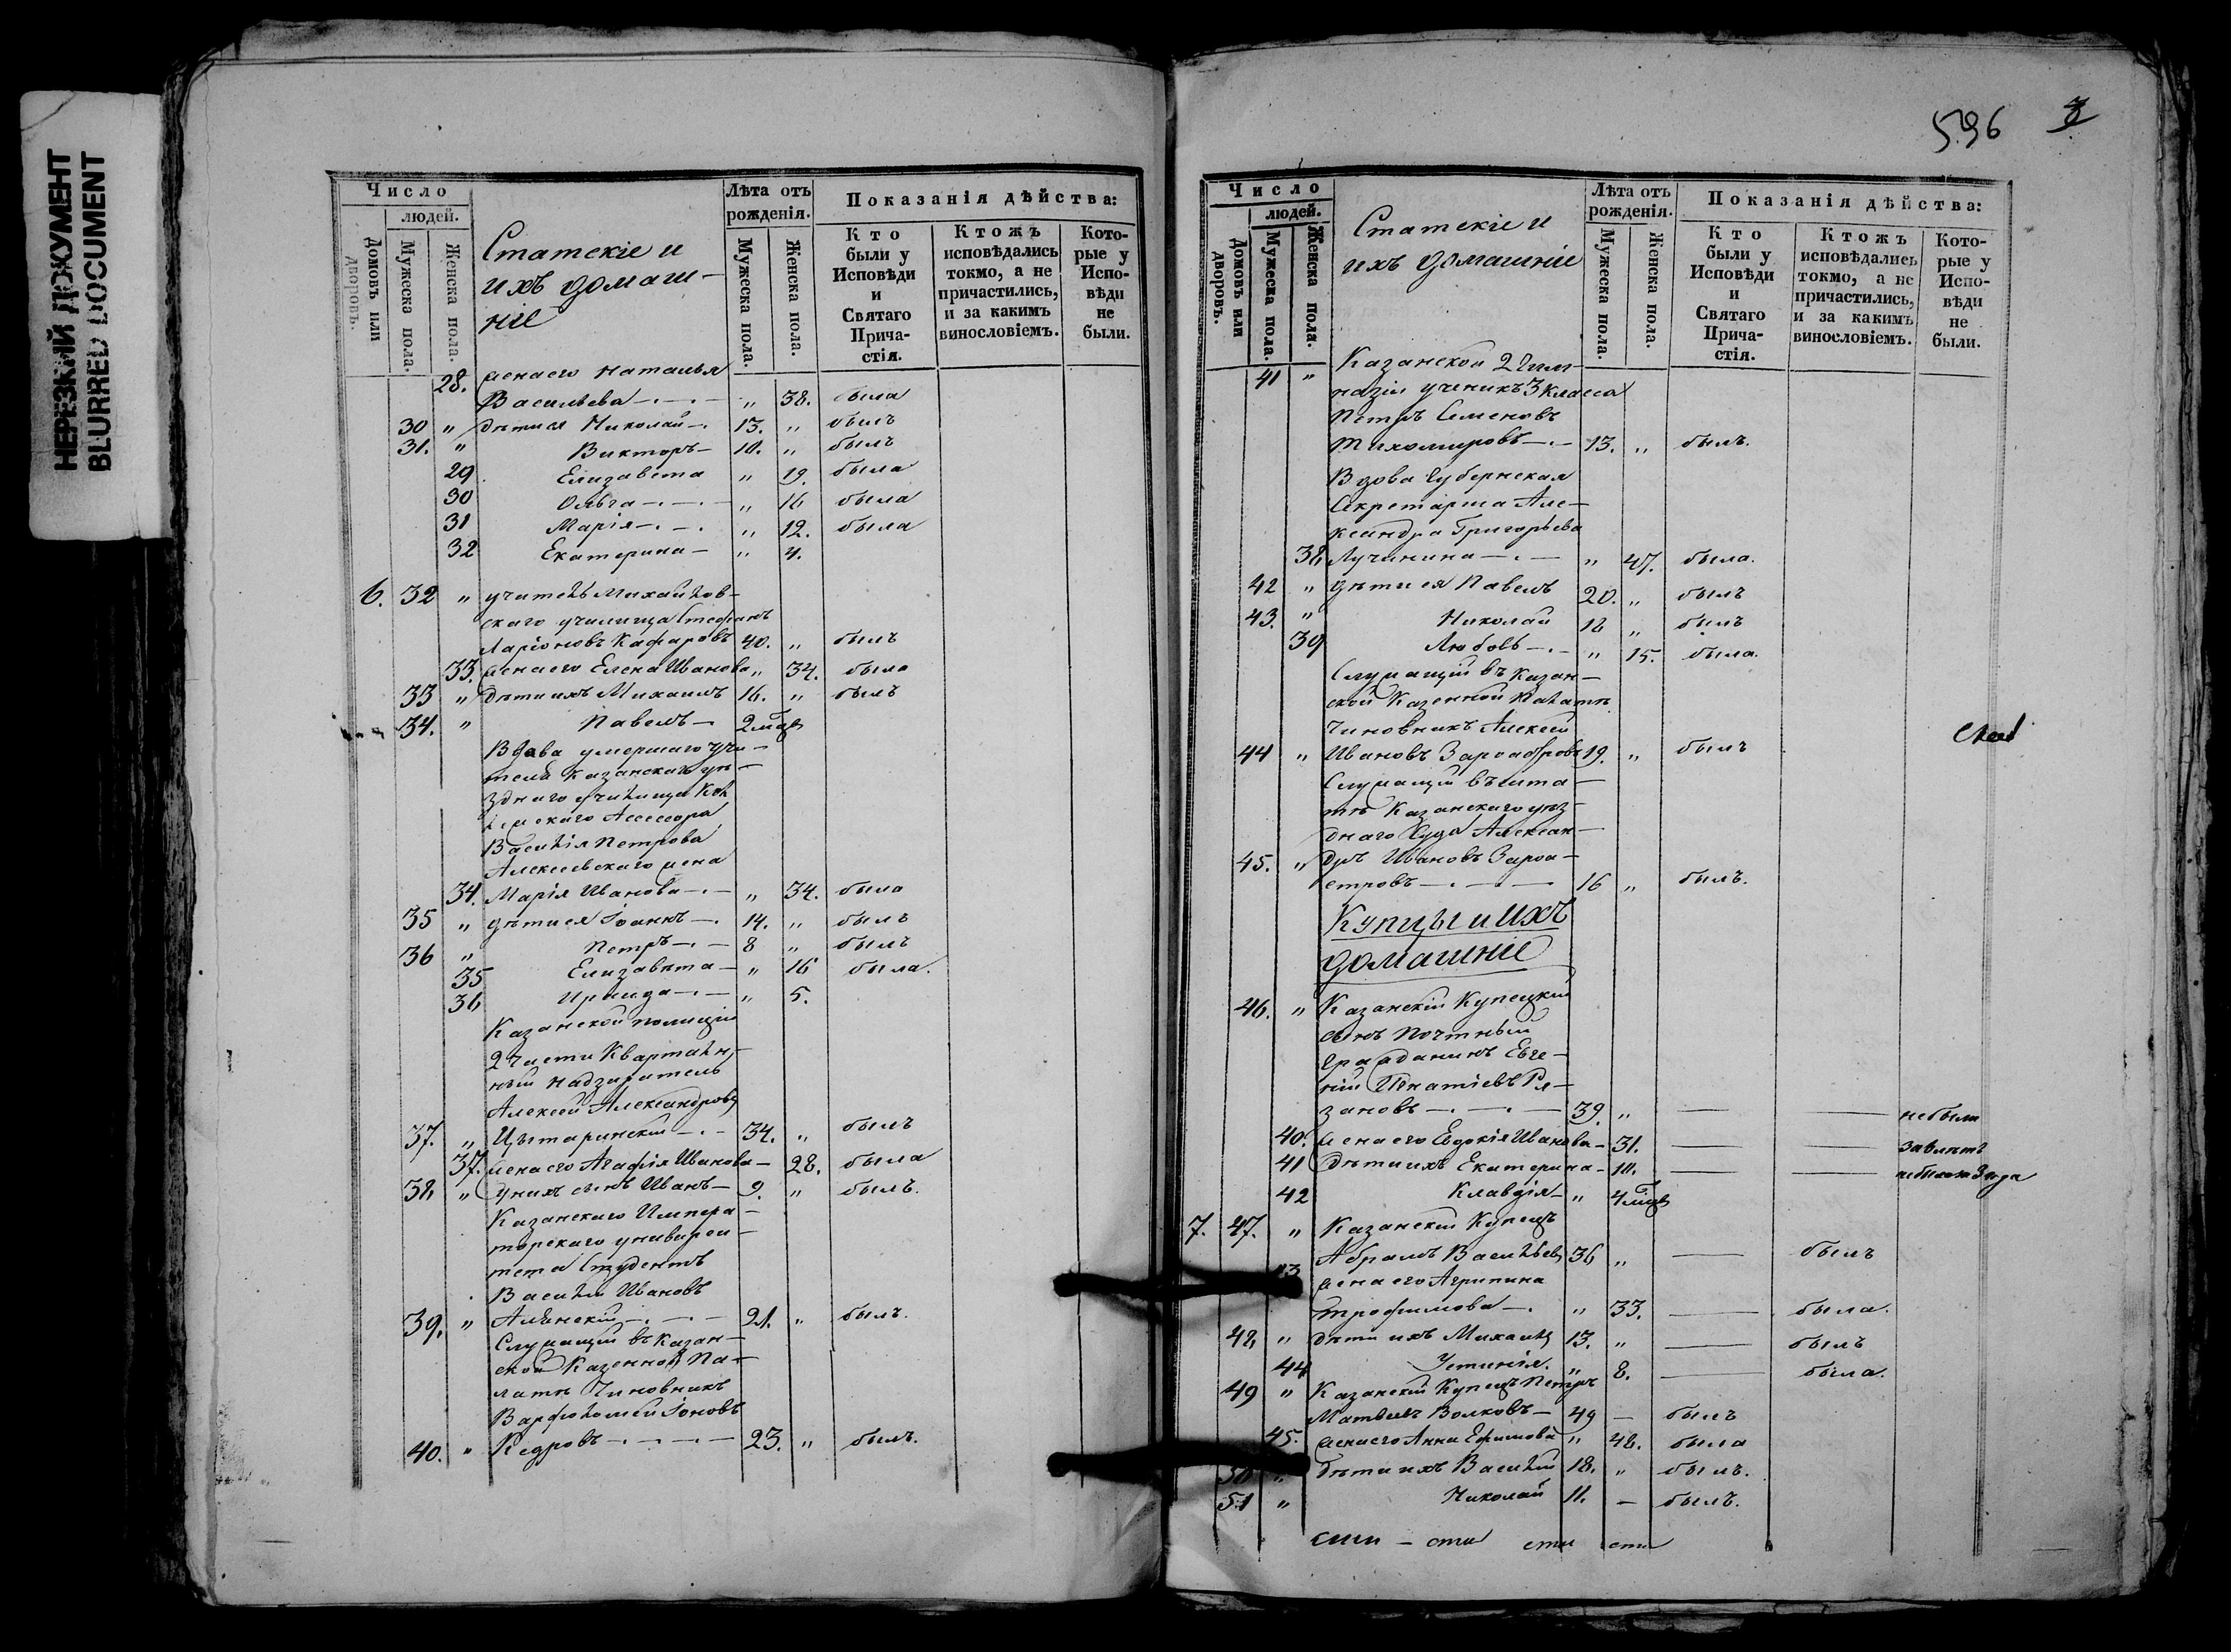 НЕРЕЗКИЙ ДОКУМЕНТ
BLURRED DOCUMENT
Число
людей.
Домовъ или дворовъ.
Мужеска пола.
Женска пола.
Статскіе и
ихъ домаш-
ніе
Лѣта отъ рожденія.
Мужеска пола.
Женска пола.
Показанія дѣйства:
Кто были у Исповѣди и Святаго Прича-стія.
Ктожъ исповѣдались токмо, а не причастились, и за какимъ винословіемъ.
Кото-рые у Испо-вѣди не были.
28. жена его Наталья
Васильева " 38. была
30 " дѣти ея Николай 13. " былъ
31. " Викторъ 10. " былъ
29 Елизавета " 19. была
30 Ольга " 16 была
31 Марія " 12. была
32 Екатерина " 4.
6. 32 " учитель Михайлов-
скаго училища Стефанъ
Ларіоновъ Кафаровъ 40. " былъ
33. жена его Елена Иванова " 34. была
33 " дѣти ихъ Михаилъ 16. " былъ
34. " Павелъ 2 мѣц
Вдова умершаго учи-
теля Казанскаго уѣ-
зднаго училища Кол
лежскаго Ассесора
Василія Петрова
Алексеевскаго жена
34. Марія Иванова " 34. была
35 " дѣти ея Іоаннъ 14. " былъ
36 " Петръ 8 " былъ
35 Елизавета " 16 была.
36 Ираида " 5.
Казанской полиціи
2 части Кварталь-
ный Надзиратель
Алексей Александровъ
37. " Цытаринскій 34. " былъ
37. жена его Агафія Иванова 28. была
38. " У нихъ сынъ Иванъ 9. " былъ.
Казанскаго Импера-
торскаго универси-
тета Студентъ
Василій Ивановъ
39. " 21. " былъ.
Служащій въ Казан-
ской Казенной Па-
латѣ Чиновникъ
Варфоломей Іоновъ
40. " Кедровъ 23. " былъ.
596
Число
людей.
Домовъ или дворовъ.
Мужеска пола.
Женска пола.
Статскіе и
ихъ домашніе
Лѣта отъ рожденія.
Мужеска пола.
Женска пола.
Показанія дѣйства:
Кто были у Исповѣди и Святаго Прича-стія.
Ктожъ исповѣдались токмо, а не причастились, и за какимъ винословіемъ.
Кото-рые у Испо-вѣди не были.
41 " Казанской 2 Гим
назіи ученикъ 3 класса
Петръ Семеновъ
Тихомировъ 13. " былъ.
Вдова Губернская
Секретарша Але-
ксандра Григорьева
38. Лучинина " 47. была.
42 " дѣти ея Павелъ 20. " былъ
43. " Николай 18 " былъ
39 Любовь " 15. была.
Служащій въ Казан-
ской Казенной Палатѣ
Чиновникъ Алексей
44 " Ивановъ 19. " былъ
Служащій въ шта-
тѣ Казанскаго уѣз-
днаго Суда Алексан-
45. " дръ Ивановъ
16 " былъ.
Купцы и ихъ
домашніе
46. " Казанскій Купецкій
сынъ Почтный
Гражданинъ Евге-
ній Игнатіевъ Ря-
зановъ 39. " не былъ
40. жена его Евдокія Иванова 31.
41 дѣти ихъ Екатерина
42 Клавдія " 4 мѣц
7. 47. " Казанскій Купецъ
Абрамъ Васильевъ 36 " былъ
жена его Агрипина
Трофимова " 33. была.
48. " дѣти ихъ Михаилъ 13. " былъ
44 Устинія. " 8. была.
49 " Казанскій Купецъ Петръ
Матвеевъ Волковъ 49 — былъ
45. жена его Анна Ефимова " 48. была
50 " дѣти ихъ Василій 18. " былъ.
51 " Николай 11. — былъ.